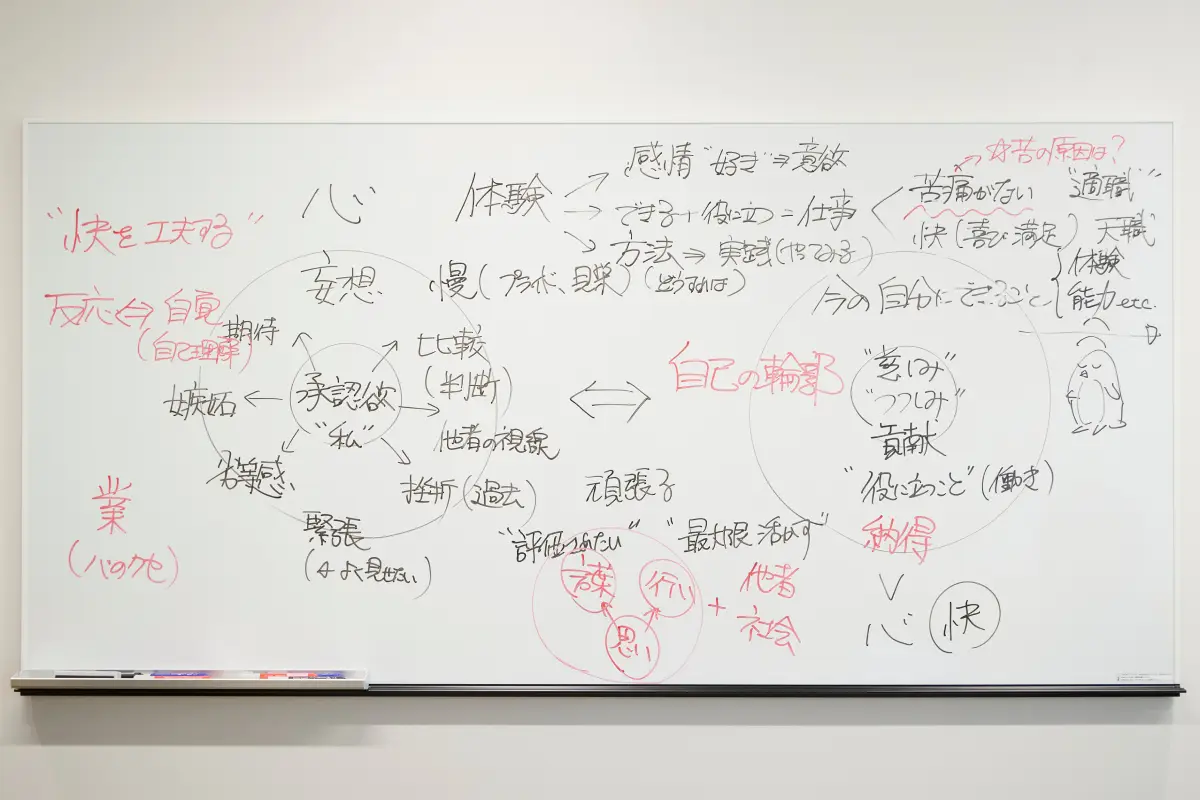 "快を工夫する"
反応⇔自覚
(自己理解)
業
(心のクセ)
心
妄想
慢(プライド、見栄)(どうすれば)
期待
比較
(判断)
嫉妬
承認欲
"私"
他者の視線
劣等感
挫折(過去)
緊張
(よく見せたい)
体験
感情"好き"⇒意欲
できる+役に立つ=仕事
方法⇒実践(やってみる)
☆苦の原因は?
苦痛がない "適職"
快(喜び 満足) 天職
今の自分にできること
体験
能力etc.
⇔
自己の輪郭
"慈しみ"
"つつしみ"
貢献
"役に立つこと"(働き)
納得
頑張る
"評価 されたい"
"最大限活かす"
言葉
行い
思い
+
他者
社会
心
快